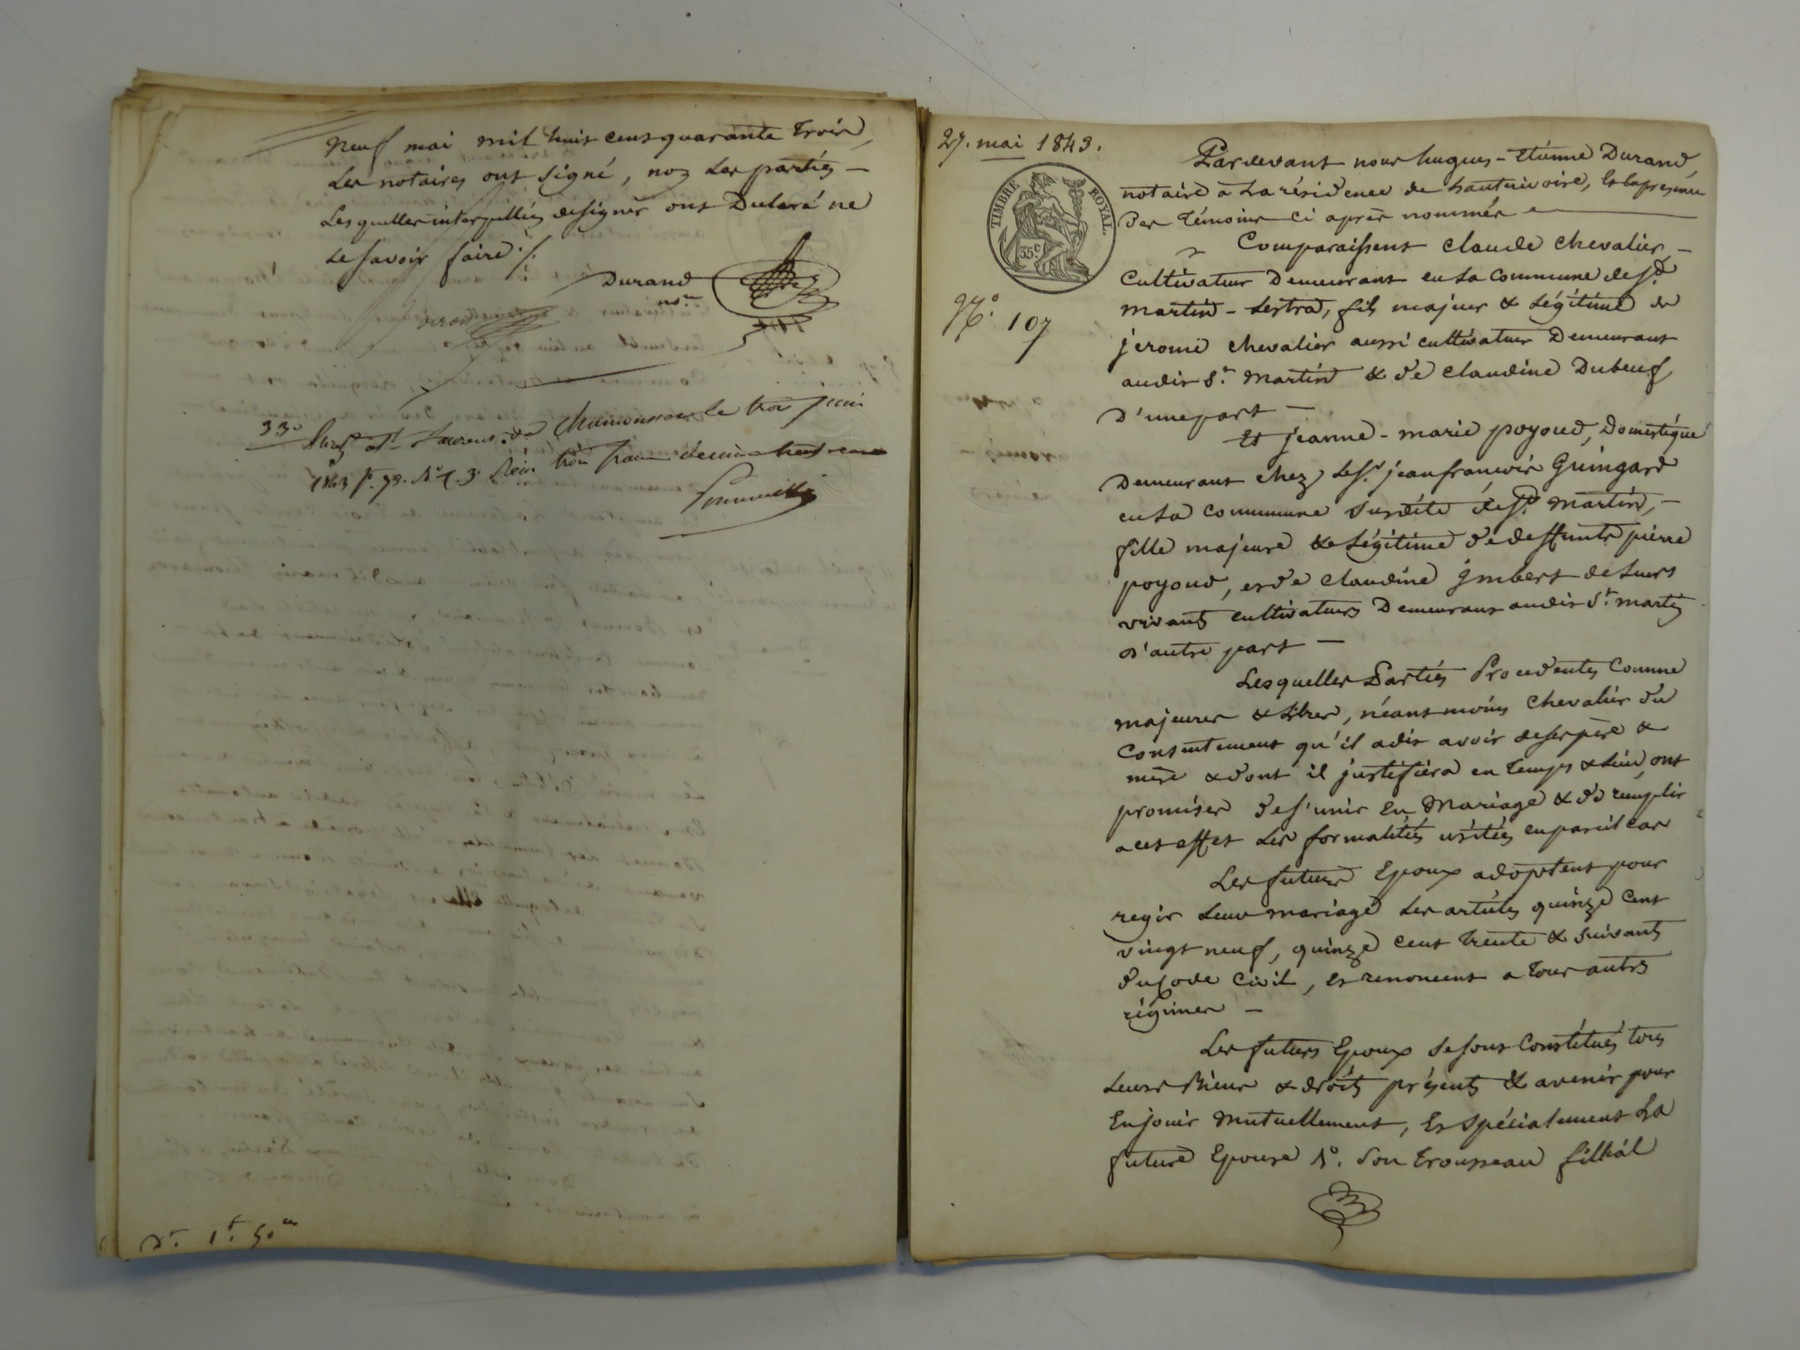 Neuf mai mil huit cent quarante trois,
Les notaires ont signé, non Les parties —
Lesquelles interpellées designer ont Declaré ne
Le savoir faire ./.
Durand
nre
330
Enreg. à St Laurent de Chamousset le trois juin
1843 f. 78. N° 4. 3 Reçu trois francs décime trente cent
Dt. 1f. 50c
27. mai 1843.
TIMBRE ROYAL.
35c
N°. 107
Pardevant nous hugues - Etienne Durand,
notaire à La résidence de hauterivoire, En la presence
Des témoins Ci après nommés
Comparaissent Claude Chevalier —
Cultivateur Demeurant en La Commune de St.
Martin - Lestra, fils majeur & Légitime de
jerome Chevalier aussi cultivateur Demeurant
audit St. Martin & de Claudine Dubeuf,
D'une part —
Et jeanne - marie poyoud, Domestique
Demeurant chez Le Sr. jean françois Guingard
en La commune Susdite de St. Martin, —
fille majeure & Légitime de deffunts pierre
poyoud, et de Claudine jmbert de Leurs
vivants cultivateurs Demeurans audit St. Martin
D'autre part —
Lesquelles Parties Procedentes Comme
majeures & Libres, néantmoins Chevalier du
Consentement qu'il a dit avoir de ses père &
mère & dont il justifiera en temps & Lieu, ont
promises de s'unir En Mariage & de remplir
a cet effet Les formalités usitées en pareil cas
Les futurs Epoux adoptent pour
regir Leur mariage Les articles quinze Cent
vingt neuf, quinze cent trente & suivants
du Code Civil, Et renoncent a tous autres
régimes —
Les futurs Epoux se sont Constitués tous
Leurs Biens & droits présents & avenir pour
En jouir Mutuellement, Et Spécialement La
future Epouse 1°. Son trousseau fillial